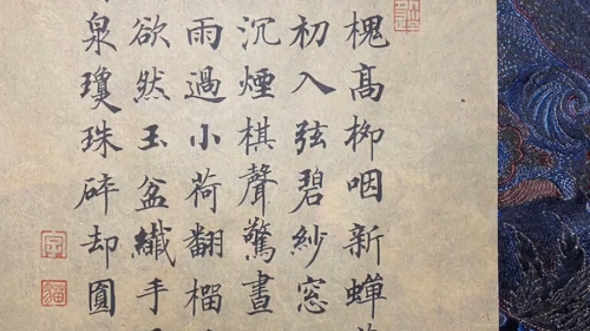 槐高柳咽新蟬
初入弦碧紗窓
沉煙棋聲驚晝
雨過小荷翻榴
欲然玉盆纖手
泉瓊珠碎却圓